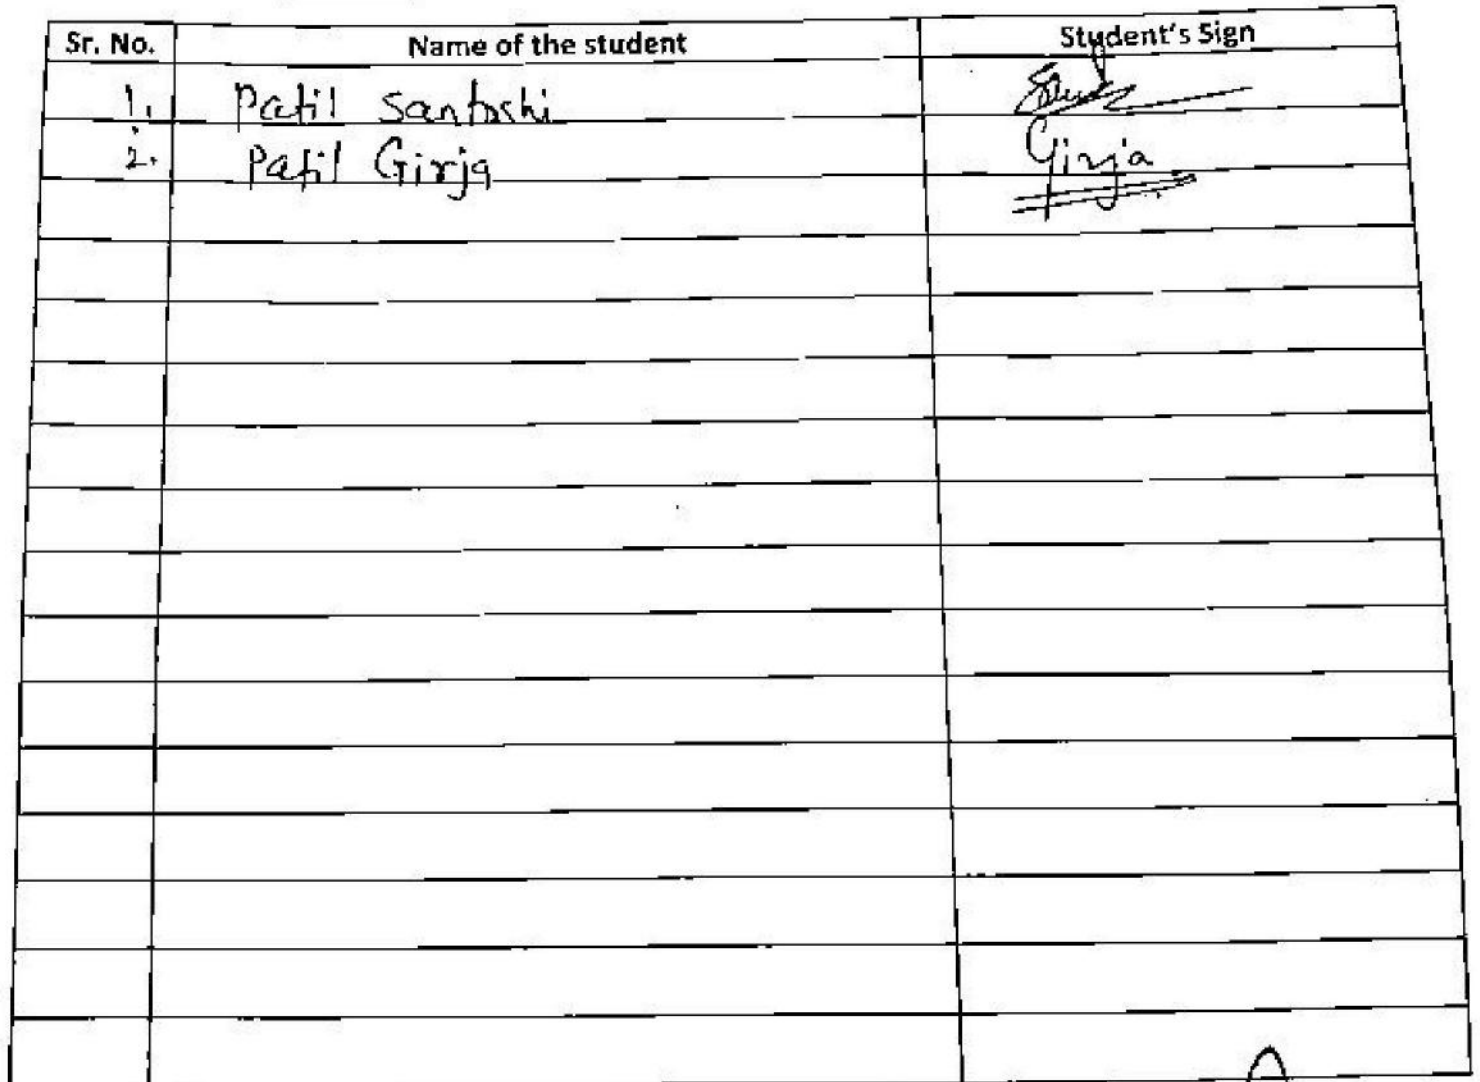 Sr. No. Name of the student Student's Sign
1. Patil Santoshi
2. Patil Girja Girja